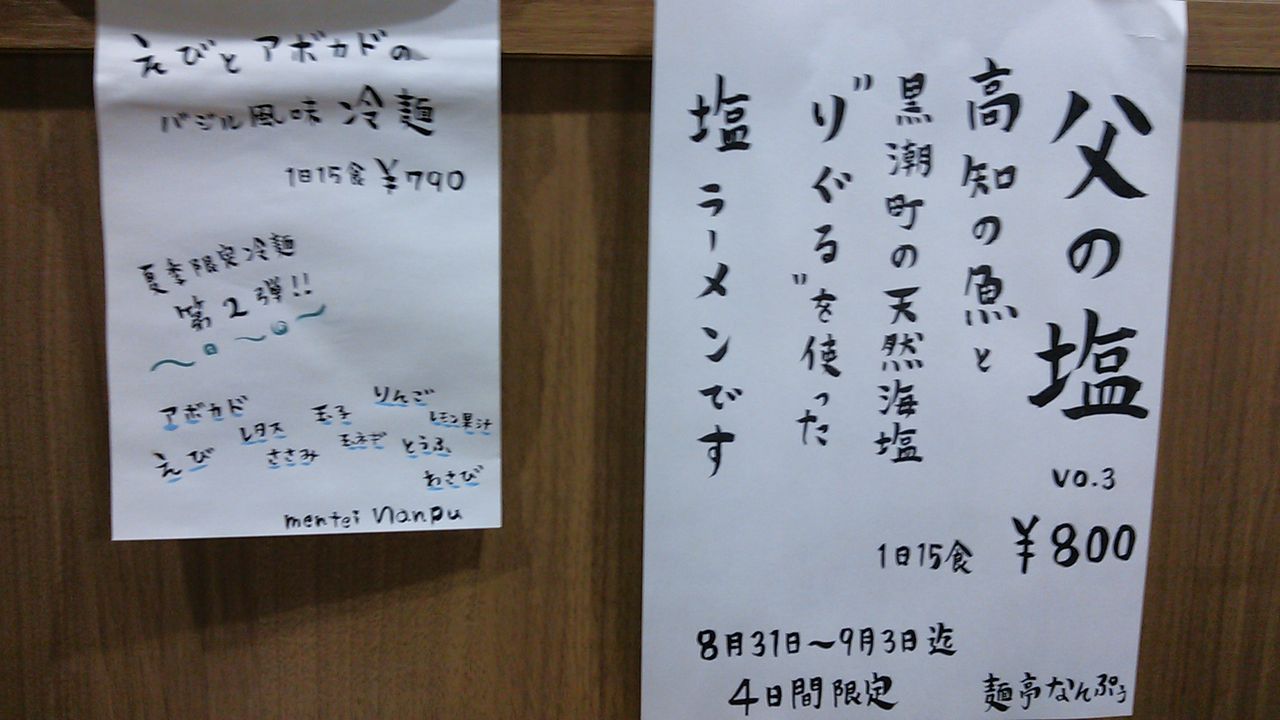 えびとアボカドの
バジル風味 冷麺
1日15食 ¥790
夏季限定冷麺
第2弾!!
アボカド
えび
レタス
ささみ
玉子
玉ネギ
りんご
レモン果汁
とうふ
わさび
mentei nanpu
父の塩
vo.3
¥800
高知の魚と
黒潮町の天然海塩
"りぐる"を使った
塩ラーメンです
1日15食
8月31日〜9月3日迄
4日間限定
麺亭なんぷぅ